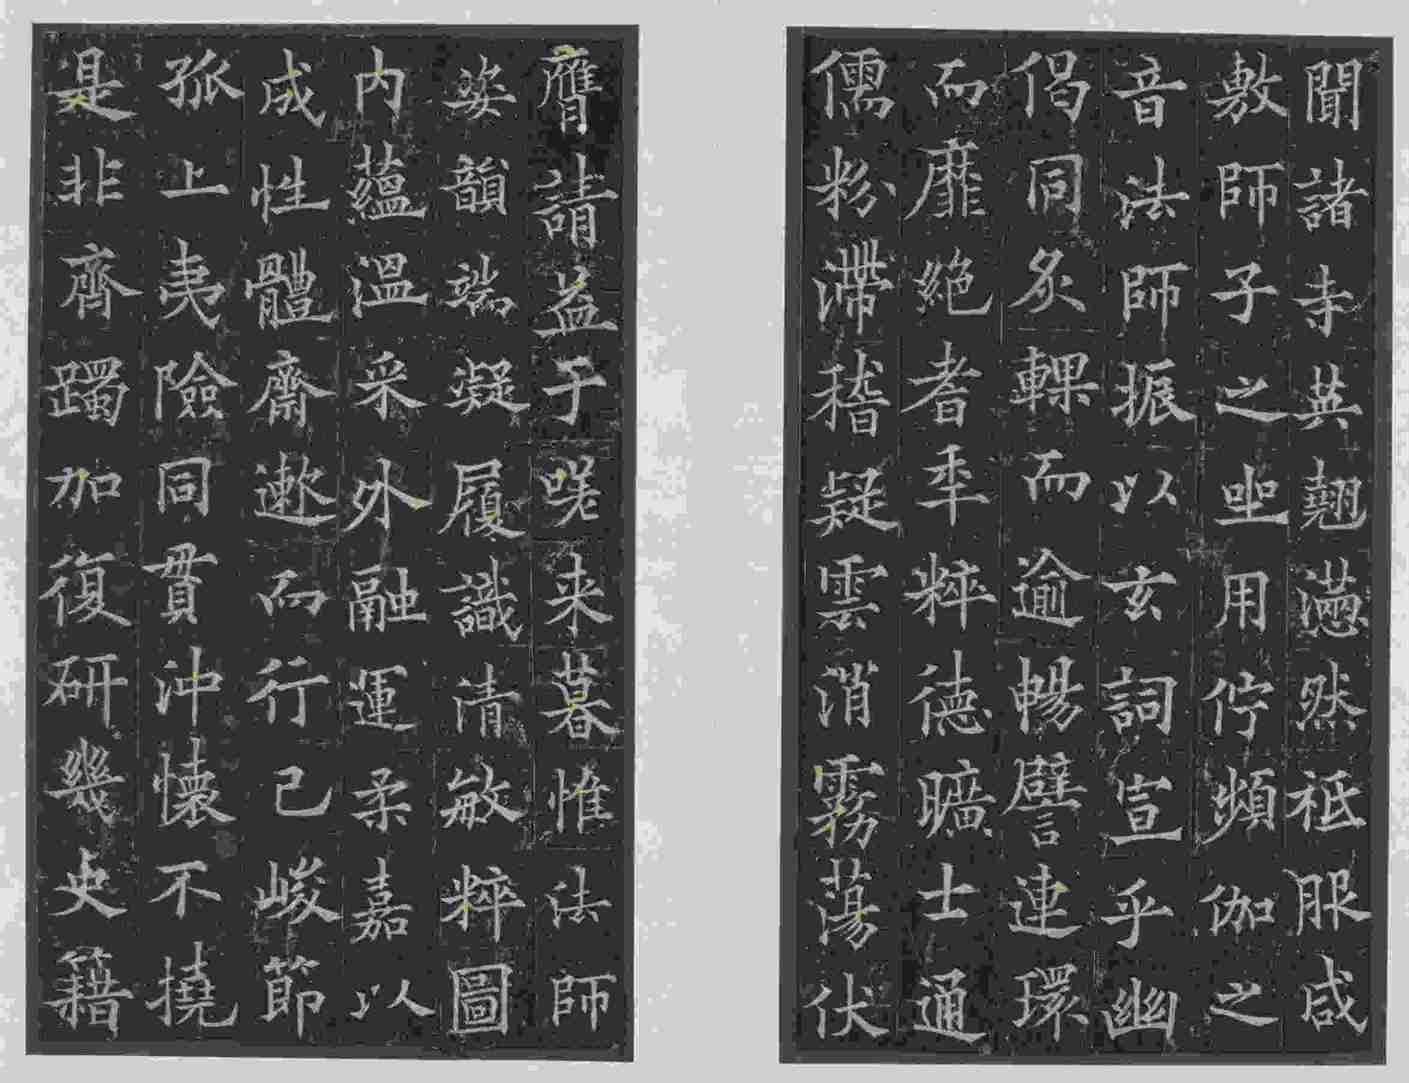 聞諸寺英翹懣然祗服咸
敷師子之座用佇頻伽之
音法師振以玄詞宣乎幽
偈同炙輠而逾暢譬連環
而靡絕耆年粹德曠士通
儒粉滯稽疑雲消霧蕩伏
膺請益于嗟来暮惟法師
姿韻端凝履識清敏粹圖
内蘊溫采外融運柔嘉以
成性體齋遬而行己峻節
孤上夷險同貫沖懷不撓
是非齊躅加復研幾史籍